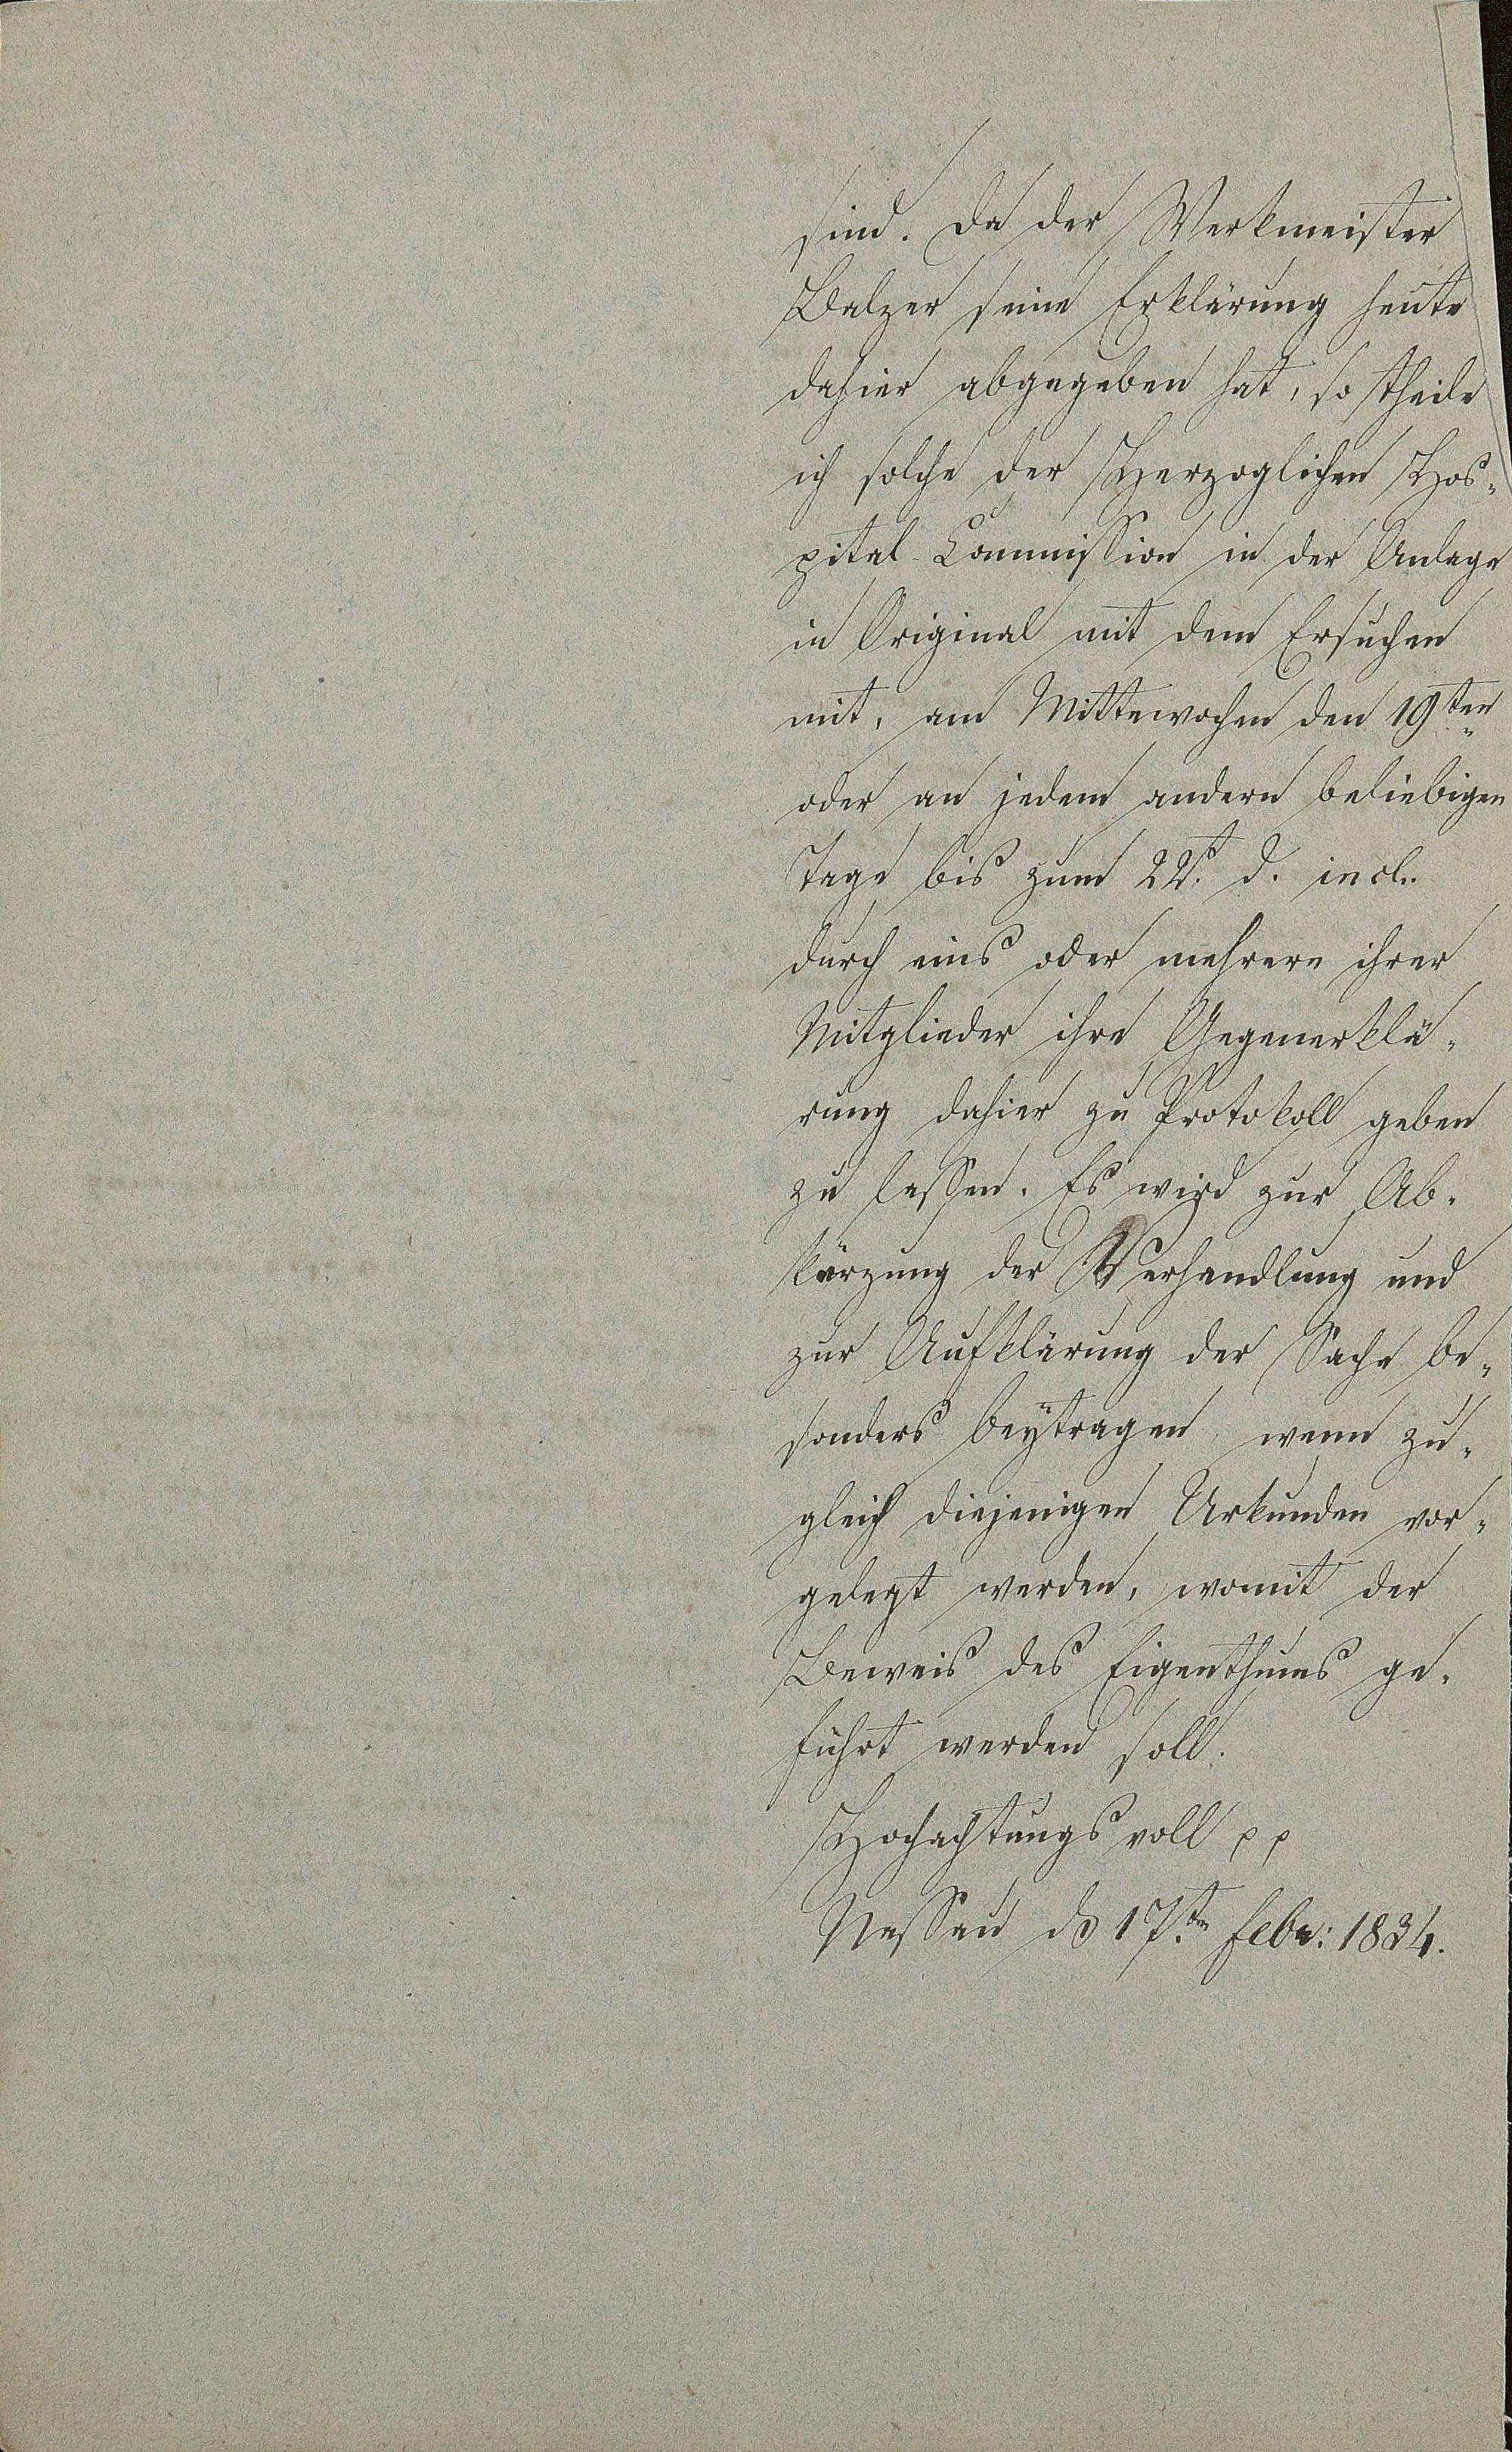 sind. Da der Werkmeister
Balzer seine Erklärung heute
dahier abgegeben hat, so theile
ich solche der Herzoglichen Hos-
pital-Commission in der Anlage
in Original mit dem Ersuchen
mit, am Mittewochen den 19ten
oder an jedem andern beliebigen
Tage bis zum 22t. d. incl.
durch eins oder mehrere ihrer
Mitglieder ihre Gegenerklä-
rung dahier zu Protokoll geben
zu lassen. Es wird zur Ab-
kürzung der Verhandlung und
zur Aufklärung der Sache be-
sonders beÿtragen, wenn zu-
gleich diejenigen Urkunden vor-
gelegt werden, womit der
Beweis des Eigenthums ge-
führt werden soll.
Hochachtungsvoll pp
Nassau d 17ten Febr: 1834.